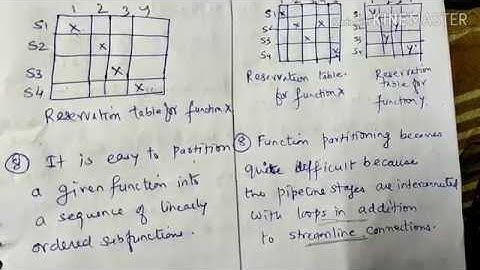 1 2 3 4
S1 X
S2 X
S3 X
S4 X
Reservation table for function X
⑧ It is easy to partition
a given function into
a sequence of linearly
ordered subfunctions.
KINEMASTER
S1 X
S2 X
S3 X
S4 X
Reservation table
for function X
Y
Y
Y
Reservation
table for
function Y.
⑧ Function partitioning becomes
quite difficult because
the pipeline stages are interconnected
with loops in addition
to streamline connections.